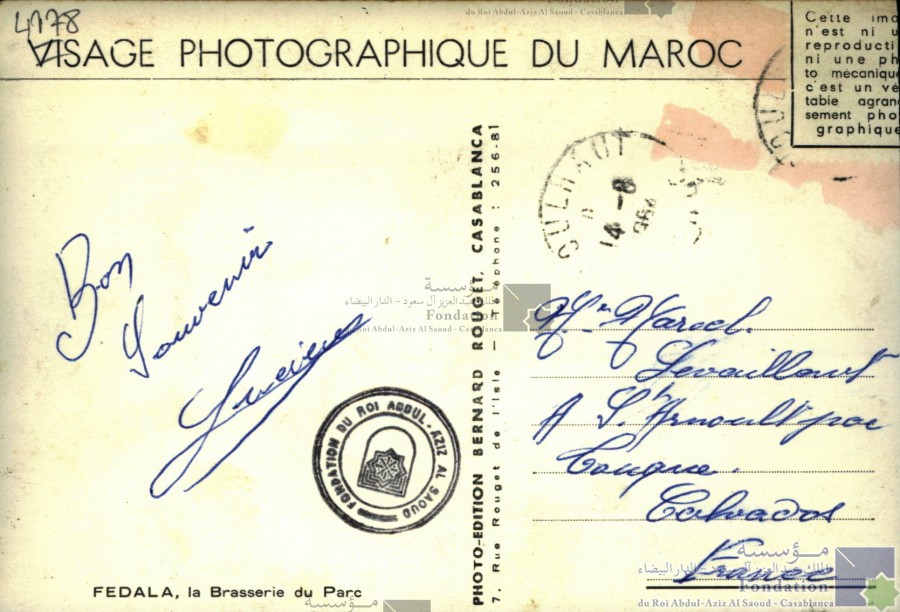 du Roi Abdul-Aziz Al Saoud - Casablanca
4178
VISAGE PHOTOGRAPHIQUE DU MAROC
Cette ima
n'est ni u
reproducti
ni une ph
to mécanique
c'est un vé
table agran
sement pho
graphique
Bon
Souvenir
Lucien
FONDATION DU ROI ABDUL-AZIZ AL SAOUD
FEDALA, la Brasserie du Parc
PHOTO-EDITION BERNARD ROUGET, CASABLANCA
7, Rue Rouget de l'Isle — Téléphone : 256-81
OULHAUT
14 - 8
مؤسسة
الملك عبد العزيز آل سعود - الدار البيضاء
Fondation
du Roi Abdul-Aziz Al Saoud - Casablanca
Mr Marcel
Levaillant
A St Arnoult par
Touques
Calvados
France
مؤسسة
الملك عبد العزيز آل سعود - الدار البيضاء
Fondation
du Roi Abdul-Aziz Al Saoud - Casablanca
مؤسسة